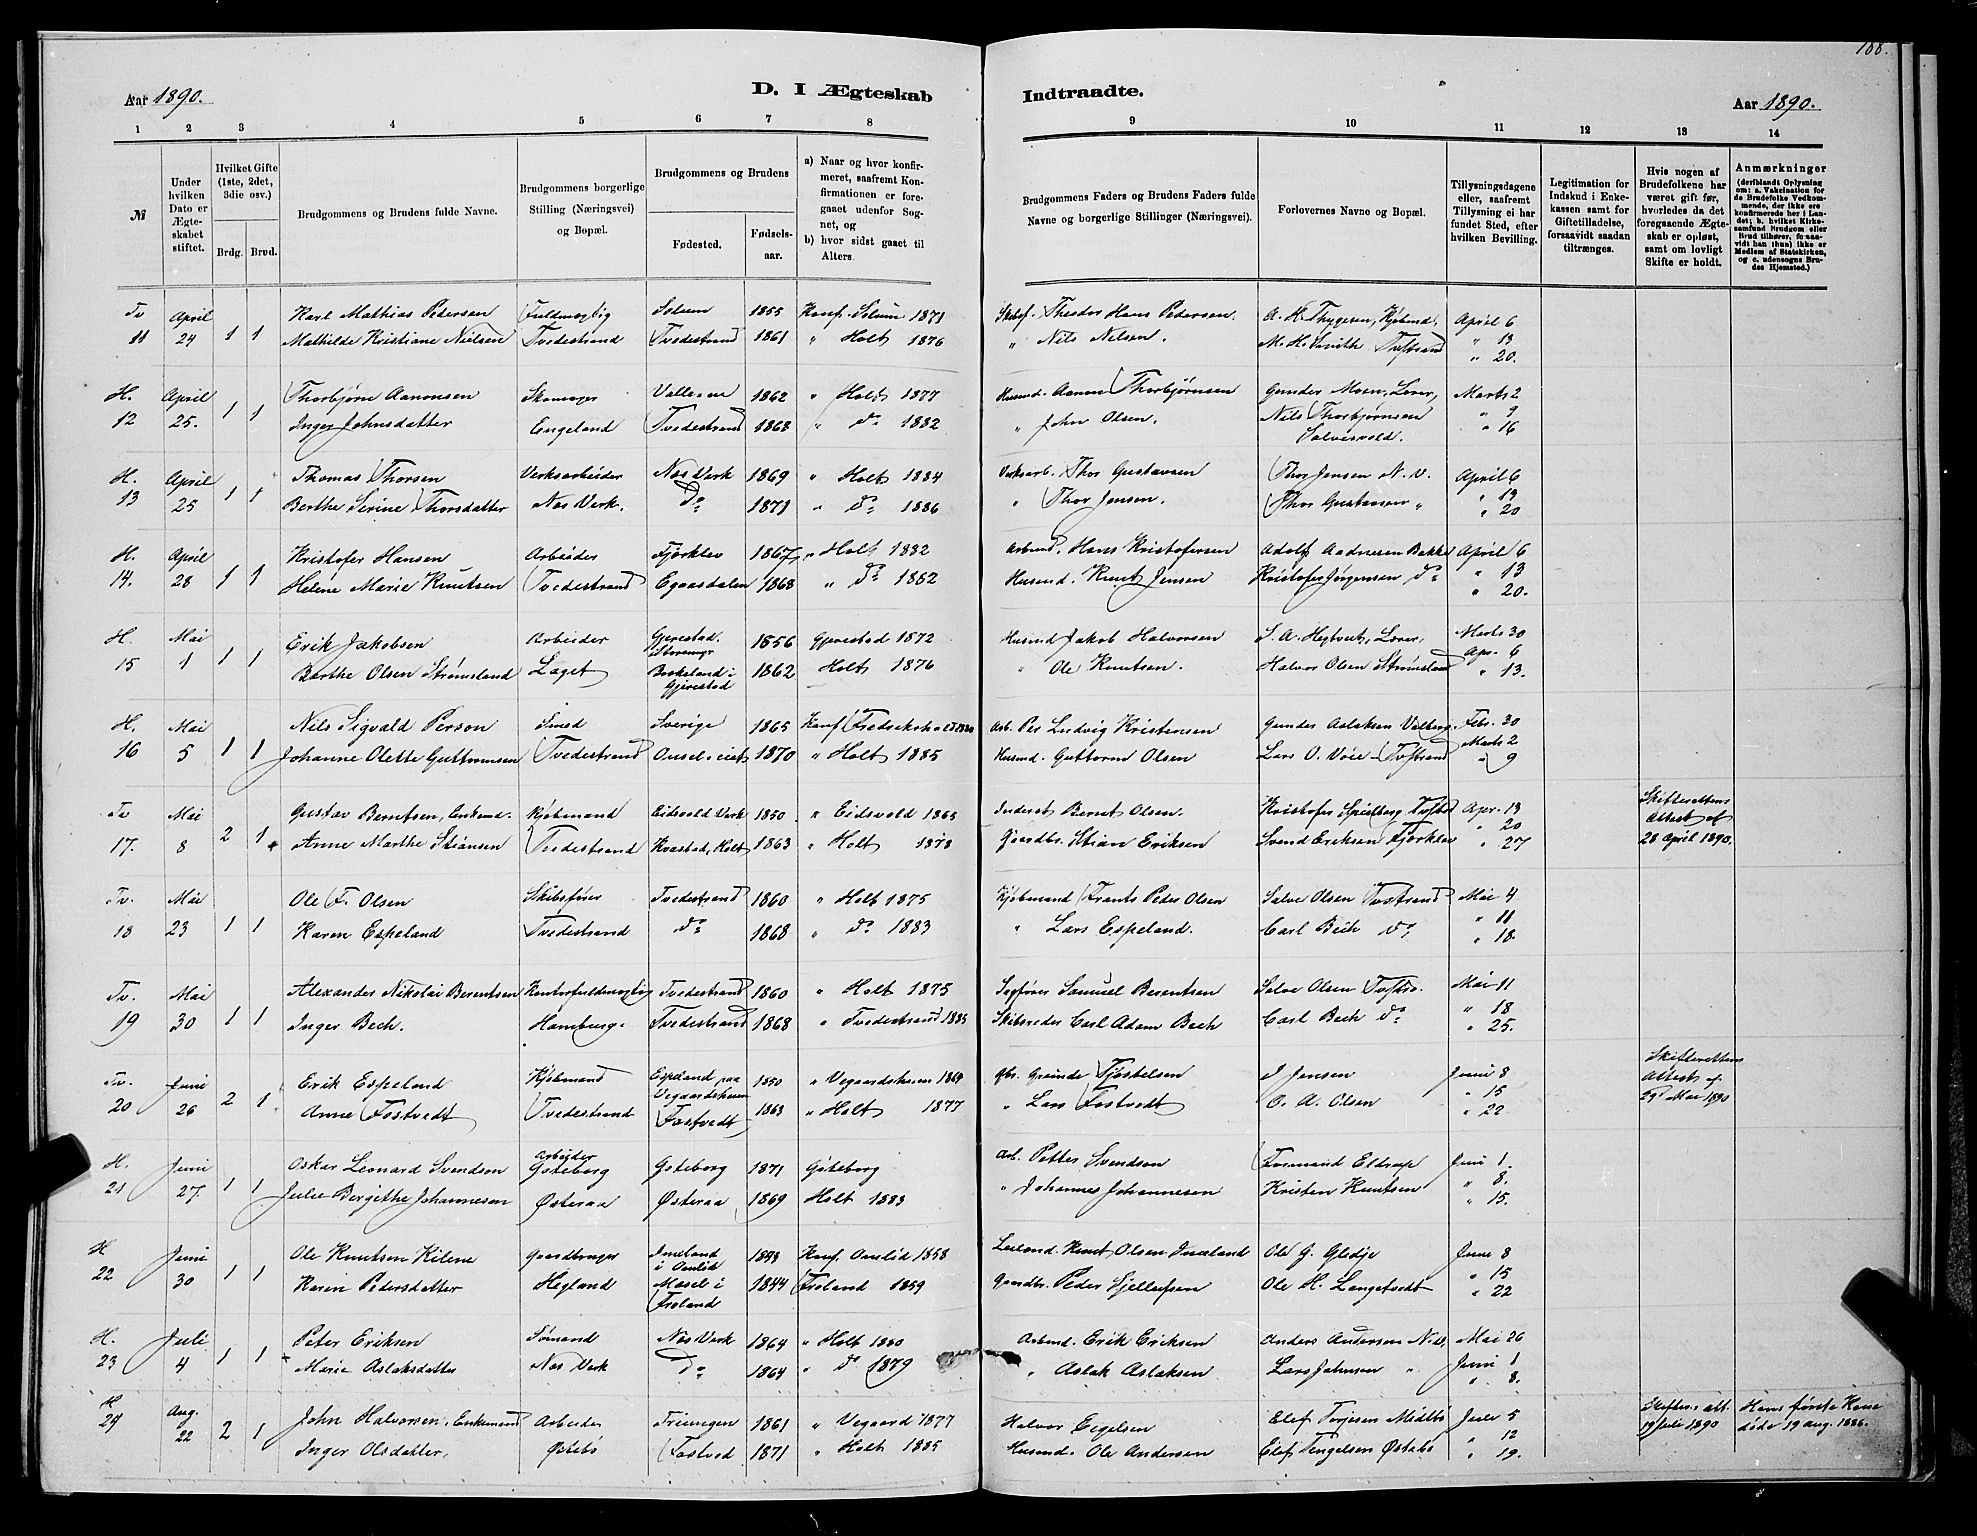 188.
Aar 1890. D. I Ægteskab Indtraadte. Aar 1890.
1 2 3 4 5 6 7 8 9 10 11 12 13 14
№
Under hvilken Dato er Ægteskabet stiftet.
Hvilket Gifte (1ste, 2det, 3die osv.)
Brdg. Brud.
Brudgommens og Brudens fulde Navne.
Brudgommens borgerlige Stilling (Næringsvei) og Bopæl.
Brudgommens og Brudens
Fødested. Fødselsaar.
a) Naar og hvor konfirmeret, saafremt Konfirmationen er foregaaet udenfor Sognet, og
b) hvor sidst gaaet til Alters.
Brudgommens Faders og Brudens Faders fulde Navne og borgerlige Stillinger (Næringsvei).
Forlovernes Navne og Bopæl.
Tillysningsdagene eller, saafremt Tillysning ei har fundet Sted, efter hvilken Bevilling.
Legitimation for Indskud i Enkekassen samt for Giftetilladelse, forsaavidt saadan tiltrænges.
Hvis nogen af Brudefolkene har været gift før, hvorledes da det foregaaende Ægteskab er opløst, samt om lovligt Skifte er holdt.
Anmærkninger (deriblandt Oplysning om: a. Vakcination for de Brudefolks Vedkommende, der ikke ere konfirmerede her i Landet; b. hvilket Kirkesamfund Brudgom eller Brud tilhører, forsaavidt han (hun) ikke er Medlem af Statskirken, og c. udensogns Brudes Hjemsted.)
Tv April Karl Mathias Petersen Fuldmægtig Solum 1855 Konf. Solum 1871 Skibsf. Theodor Hans Pedersen. A. H. Thygesen, Kjøbmd. April 6
11 24 1 1 Mathilde Kristiane Nielsen Tvedestrand Tvedestrand 1861 " Holt 1876 " Nils Nilsen. M. H. Smith Tvstrand " 13
" 20.
H. April Thorbjørn Aanonsen Skomager 1862 " Holt 1877 Husmd. Aanon Thorbjørnsen Gunder Moen, Lærer, Marts 2
12 25. 1 1 Inger Johnsdatter Engeland Tvedestrand 1868 " do 1882 " John Olsen. Nils Thorbjørnsen " 9
Salvesvold. " 16
H. April Thomas Thorsen Verksarbeider Næs Verk 1869 " Holt 1884 Verksarb. Thor Gustavsen Thor Jensen N. V. April 6
13 25 1 1 Berthe Serine Thorsdatter Næs Verk. do 1871 " do 1886 " Thor Jensen. Thor Gustavsen " " 13
" 20
H. April Kristofer Hansen Arbeider Fjørklev 1867 " Holt 1882 Arbmd. Hans Kristofersen Adolf Aadnesen Bakke April 6
14. 28 1 1 Helene Marie Knutsen Tvedestrand Egaasdalen 1868 " do 1882 Husmd. Knut Jensen Kristofer Jørgensen do " 13
" 20.
H. Mai Erik Jakobsen Arbeider Gjerestad. 1856 Gjerestad 1872 Husmd Jakob Halvorsen Lærer, Marts 30
15 1 1 1 Barthe Olsen Strømsland Laget Gjerestad 1862 Holt 1876 " Ole Knutsen. Halvor Olsen Strømsland Apr. 6
" 13.
H. Mai Nils Sigvald Person Smed Sverige 1865 Konf. Arb. Per Ludvig Kristensen Gunder Aslaksen Febr. 30
16 5 1 1 Johanne Olette Guttormsen Tvedestrand 1870 " Holt 1885 Husmd. Guttorm Olsen Lars O. Voie Tvstrand Marts 2
" 9
Tv Mai Gustav Berntsen, Enkemd. Kjøbmand Eidsvold Verk 1850 " Eidsvold 1865 Inderst Bernt Olsen. Kristofer Spielberg Tvstrd Apr. 13 Skifterettens
17. 8 2 1 Anne Marthe Stiansen Tvedestrand Kvastad, Holt 1863 " Holt 1878 Gaardbr. Stian Eriksen Svend Eriksen Fjørklev " 20 Attest af
" 27 28 April 1890.
Tv. Mai Ole F. Olsen Skibsfører Tvedestrand 1860 " Holt 1875 Kjøbmand Frants Peder Olsen Salve Olsen Tvstrand Mai 4
18 23 1 1 Karen Espeland Tvedestrand do 1868 " do 1883 " Lars Espeland. Carl Bech do " 11
" 18.
Tv. Mai Alexander Nikolai Berentsen Kontorfuldmægtig Tvedestrand 1860 " Holt 1875 Samuel Berentsen Salve Olsen Tvstrd. Mai 11
19 30 1 1 Inger Bech. Hamburg. Tvedestrand 1868 " Tvedestrand 1885 Skibsreder Carl Adam Bech Carl Bech do " 18
" 25.
Tv. Juni Erik Espeland Kjøbmand Espeland paa Vegaardsheien 1850 " Vegaardsheien 1864 Gbr. Graunde Tjostelsen J Jensen Juni 8 Skifterettens
20 26 2 1 Anne Fostvedt Tvedestrand Fostvedt 1863 " Holt 1877 " Lars Fostvedt O. A. Olsen " 15 Attest af
" 22 29 Mai 1890
H. Juni Oskar Leonard Svendson Arbeider Gøteborg Gøteborg 1871 Gøteborg Arb. Petter Svendson Formand Eldrup Juni 1.
21 27. 1 1 Julie Bergithe Johannesen Østeraa Østeraa 1869 Holt 1883 " Johannes Johannesen Kristen Knutsen " 8.
" 15.
H Juni Ole Knutsen Kilene Gaardbruger Imeland i Omlid 1843 Konf. Omlid 1858 Knut Olsen Imeland Ole G. Gledje Juni 8
22 30 1 1 Karen Pedersdatter Hegland Mosel i Froland 1844 Froland 1859 Gaardbr. Peder Gjellufsen Ole H. Langetvedt " 15
" 22
H. Juli Peter Eriksen Sømand Næs Verk 1864 " Holt 1880 Arbmd. Erik Eriksen Anders Andersen N. V. Mai 26
23 4 1 1 Marie Aslaksdatter Næs Verk do 1864 " do 1879 " Aslak Aslaksen Lars Johnsen " Juni 1
" 8.
H Aug. John Halvorsen, Enkemand Arbeider 1861 " Vegaard 1877 Halvor Eigelsen Elef Terjesen Midtbø Juli 5 Skifter. att. Hans første Kone
24 22 2 1 Inger Olsdatter, Østebø Fostved 1871 " Holt 1885 Husmd. Ole Andersen Elef Tengelsen Østebø " 12 19 Juli 1890 døde 19 Aug. 1886.
" 19.